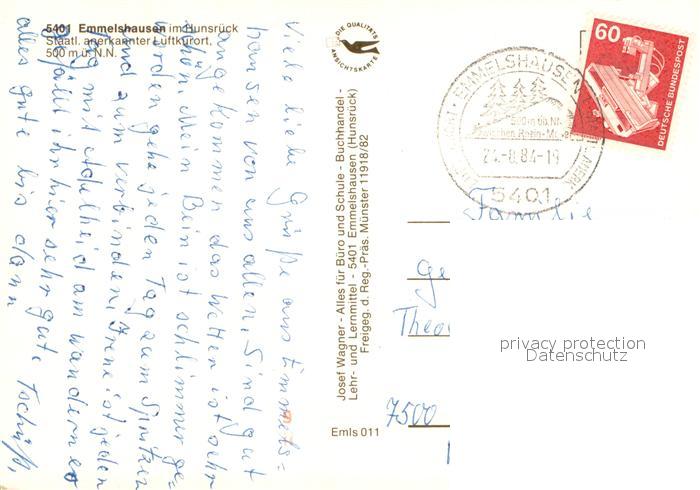 5401 Emmelshausen im Hunsrück
Staatl. anerkannter Luftkurort,
500 m ü. N.N.
DIE QUALITÄTS
ANSICHTSKARTE
Viele liebe Grüße aus Emmels=
hausen von uns allen. Sind gut
angekommen das Wetter ist sehr
schön. Mein Bein ist schlimmer ge=
worden gehe jeden Tag zum Spritzen
und zum verbinden. Irene ist jeden
Tag mit Adelheid am wandern es
gefällt ihr hier sehr gut. Tschüß,
alles gute bis dann
Josef Wagner - Alles für Büro und Schule - Buchhandel -
Lehr- und Lernmittel - 5401 Emmelshausen (Hunsrück)
Freigeg. d. Reg.-Präs. Münster 11918/82
Emls 011
EMMELSHAUSEN
500 m üb. NN
zwischen Rhein-Mosel
24.-8.84-19
5401
60
DEUTSCHE BUNDESPOST
Familie
Ge
Theo
7500
privacy protection
Datenschutz